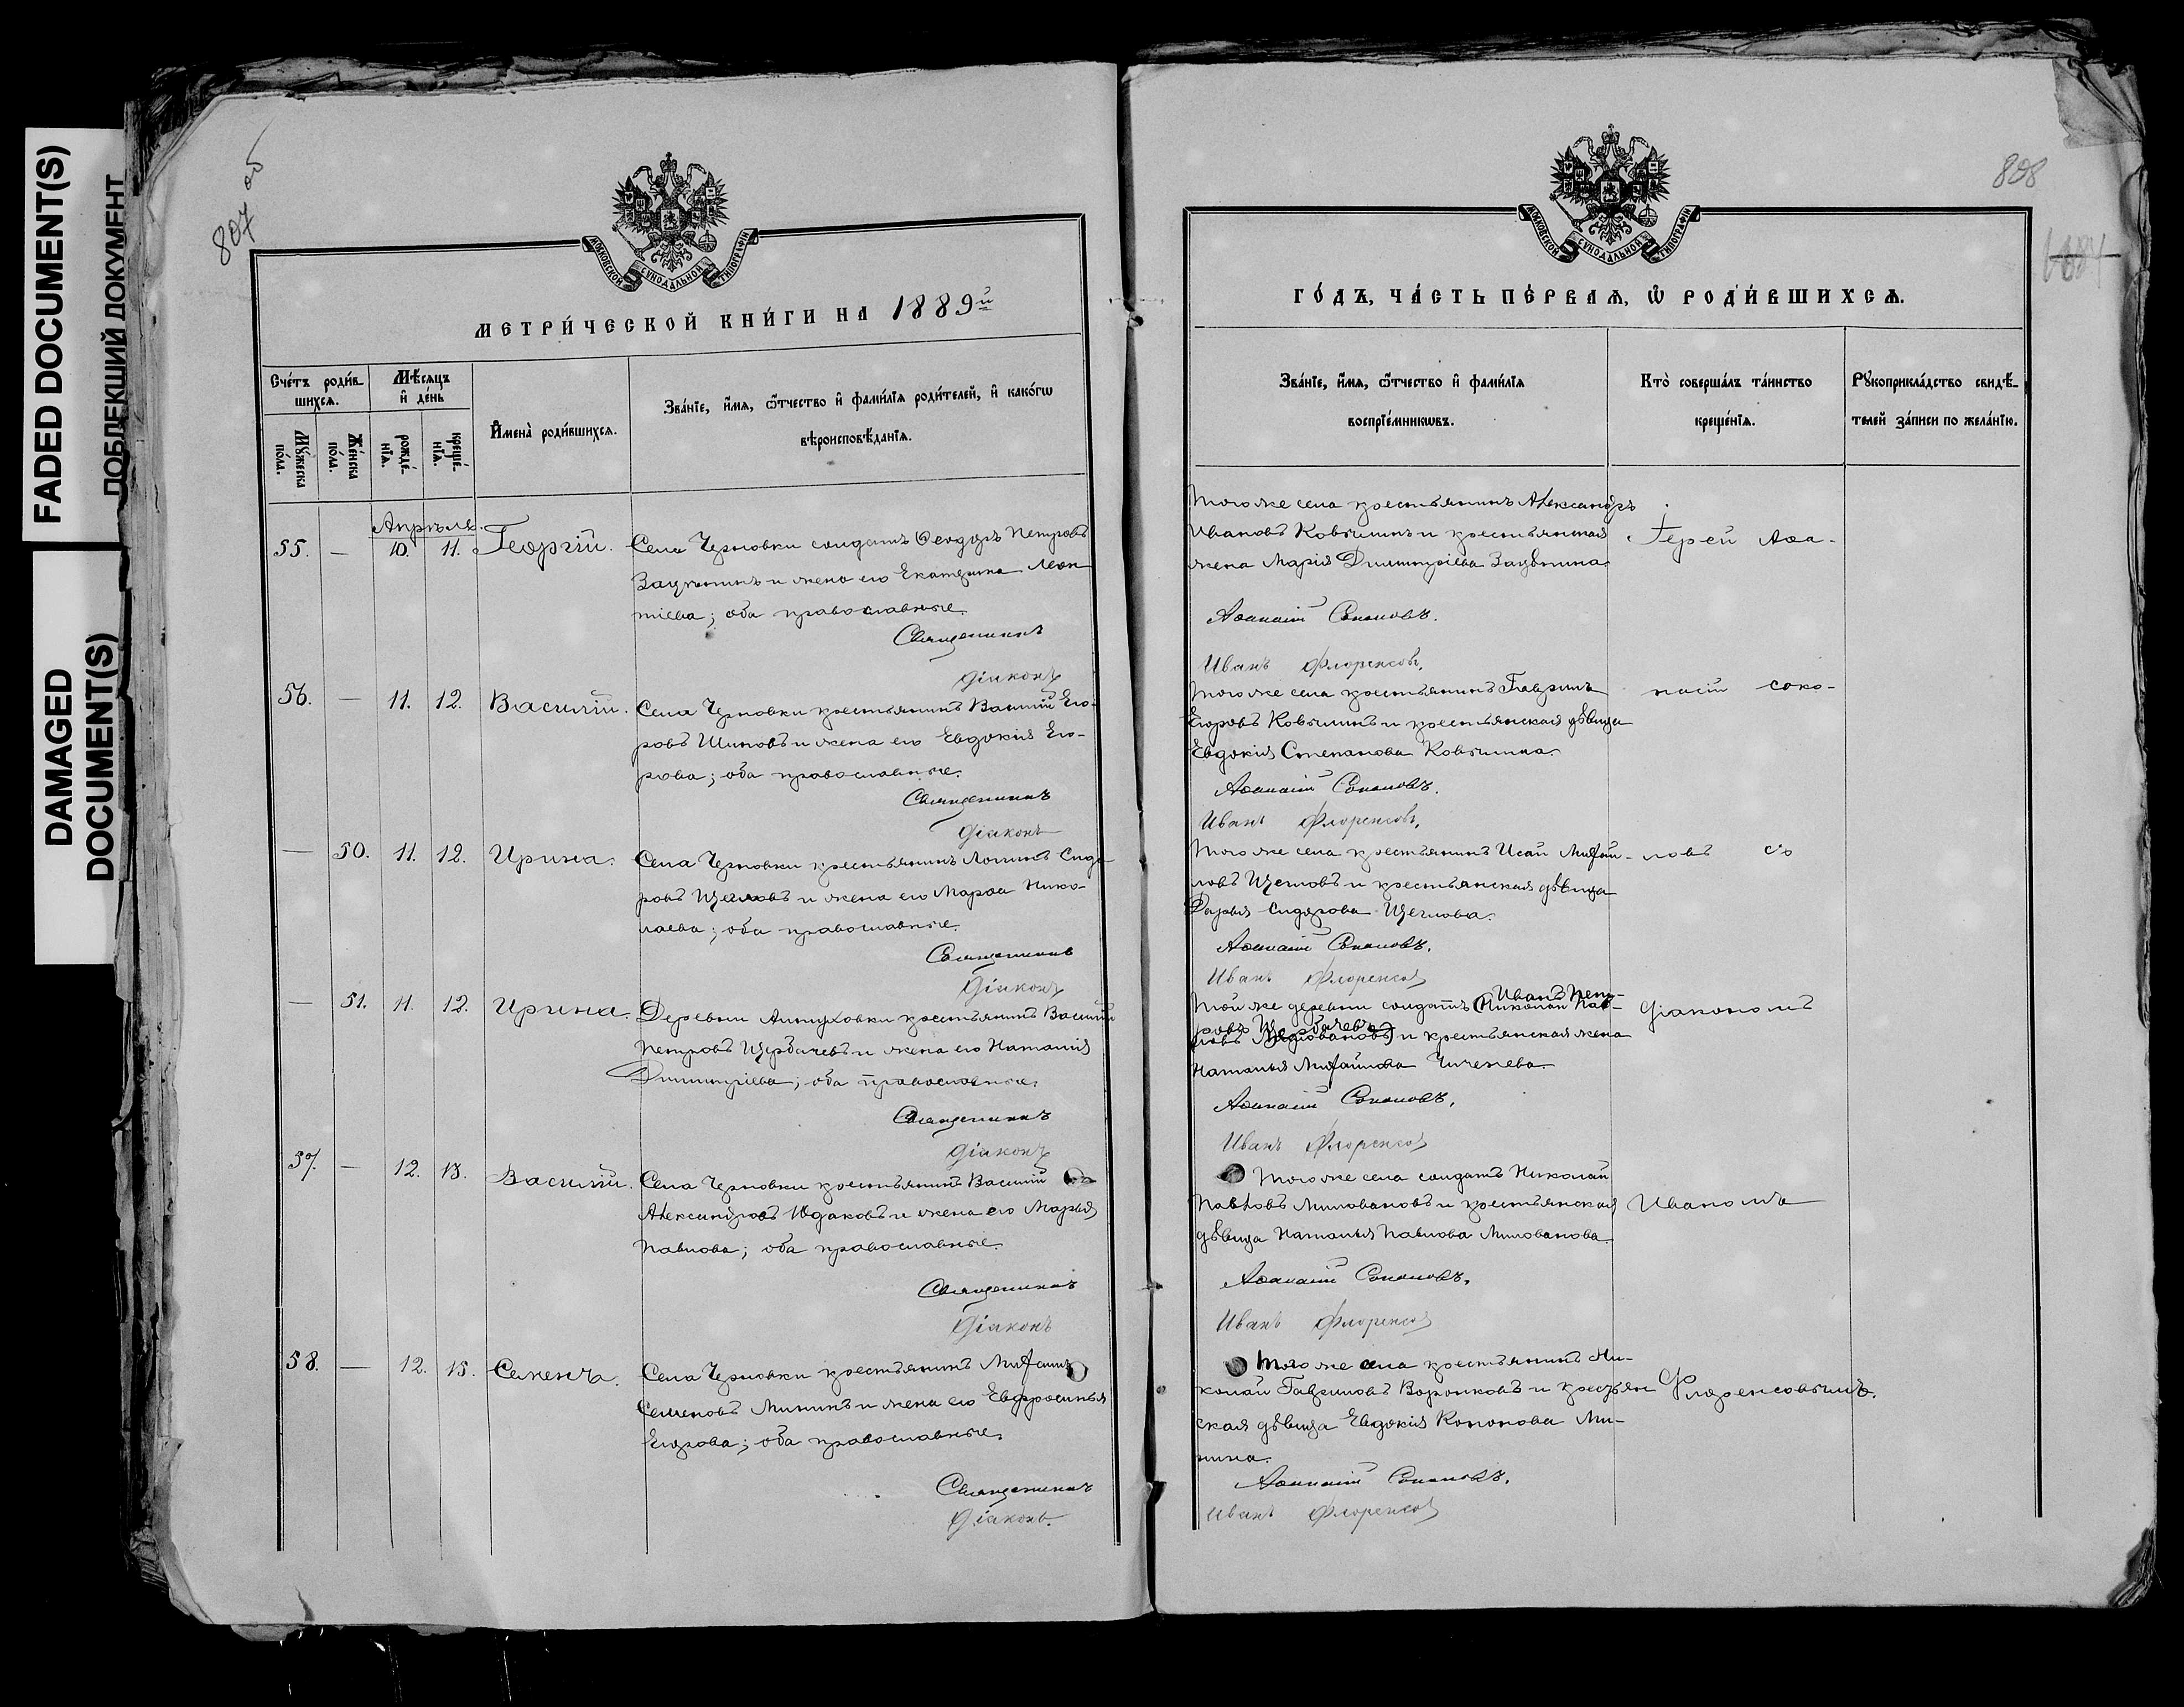 FADED DOCUMENT(S)
ПОБЛЕКШИЙ ДОКУМЕНТ
DAMAGED
DOCUMENT(S)
807 об
МОСКОВСКОЙ СУНОДАЛЬНОЙ ТИПОГРАФІИ
МЕТРИ́ЧЕСКОЙ КНИ́ГИ НА 1889й
Сче́тъ роди́в-
шихсѧ.
Мꙋ́жеска
по́ла.
Же́нска
по́ла.
Мѣ́сѧцъ
и҆ де́нь
рожде́-
нїѧ.
креще́-
нїѧ.
И҆мена̀ роди́вшихсѧ.
Зва́нїе, и҆́мѧ, ѻ҆́тчество и҆ фами́лїѧ роди́телей, и҆ како́гѡ
вѣроисповѣ́данїѧ.
Апрѣль.
55. — 10. 11. Георгій. Села Черновки солдатъ Ѳеодоръ Петровъ
и жена его Екатерина Леон
тіева; оба православные.
Священникъ
Діаконъ
56. — 11. 12. Василій. Села Черновки крестьянинъ Василій Его-
ровъ Шиповъ и жена его Евдокія Его-
рова; оба православные.
Священникъ
Діаконъ
— 50. 11. 12. Ирина. Села Черновки крестьянинъ Логинъ Сидо-
ровъ Щегловъ и жена его Марѳа Нико-
лаева; оба православные.
Священникъ
Діаконъ
— 51. 11. 12. Ирина. Деревни крестьянинъ Василій
Петровъ Щербачевъ и жена его Наталія
Димитріева; оба православные.
Священникъ
Діаконъ
57. — 12. 13. Василій. Села Черновки крестьянинъ Василій
Александровъ и жена его Марья
Павлова; оба православные.
Священникъ
Діаконъ
58. — 12. 15. Семенъ. Села Черновки крестьянинъ Михаилъ
Семеновъ Мининъ и жена его Евфросинья
Егорова; оба православные.
Священникъ
Діаконъ.
808
МОСКОВСКОЙ СУНОДАЛЬНОЙ ТИПОГРАФІИ
ГО́ДЪ, ЧА́СТЬ ПЕ́РВАѦ, Ѡ҆ РОДИ́ВШИХСѦ.
Зва́нїе, и҆́мѧ, ѻ҆́тчество и҆ фами́лїѧ
воспрїе́мникѡвъ.
Кто̀ соверша́лъ та́инство
креще́нїѧ.
Рꙋкоприкла́дство свидѣ́-
телей за́писи по жела́нїю.
Того же села крестьянинъ Александръ
Ивановъ Ковылинъ и крестьянская
жена Марія Димитріева
Іерей Аѳа-
Аѳанасій Соколовъ.
Иванъ Флоренсовъ.
Того же села крестьянинъ Гавріилъ
Егоровъ Ковылинъ и крестьянская дѣвица
Евдокія Степанова Ковылина.
насій Соко-
Аѳанасій Соколовъ.
Иванъ Флоренсовъ.
Того же села крестьянинъ Исай Михай-
ловъ Щегловъ и крестьянская дѣвица
Дарья Сидорова Щеглова.
ловъ съ
Аѳанасій Соколовъ.
Иванъ Флоренсовъ
Той же деревни солдатъ (Николай Пав-
Иванъ Пет-
ловъ Миловановъ) и крестьянская жена
ровъ Щербачевъ
Наталья Михайлова
Діакономъ
Аѳанасій Соколовъ.
Иванъ Флоренсовъ
Того же села солдатъ Николай
Павловъ Миловановъ и крестьянская
дѣвица Наталья Павлова Милованова.
Иваномъ
Аѳанасій Соколовъ.
Иванъ Флоренсовъ
Того же села крестьянинъ Ни-
колай Гавриловъ Воронковъ и крестьян
ская дѣвица Евдокія Кононова Ми-
нина.
Флоренсовымъ.
Аѳанасій Соколовъ.
Иванъ Флоренсовъ